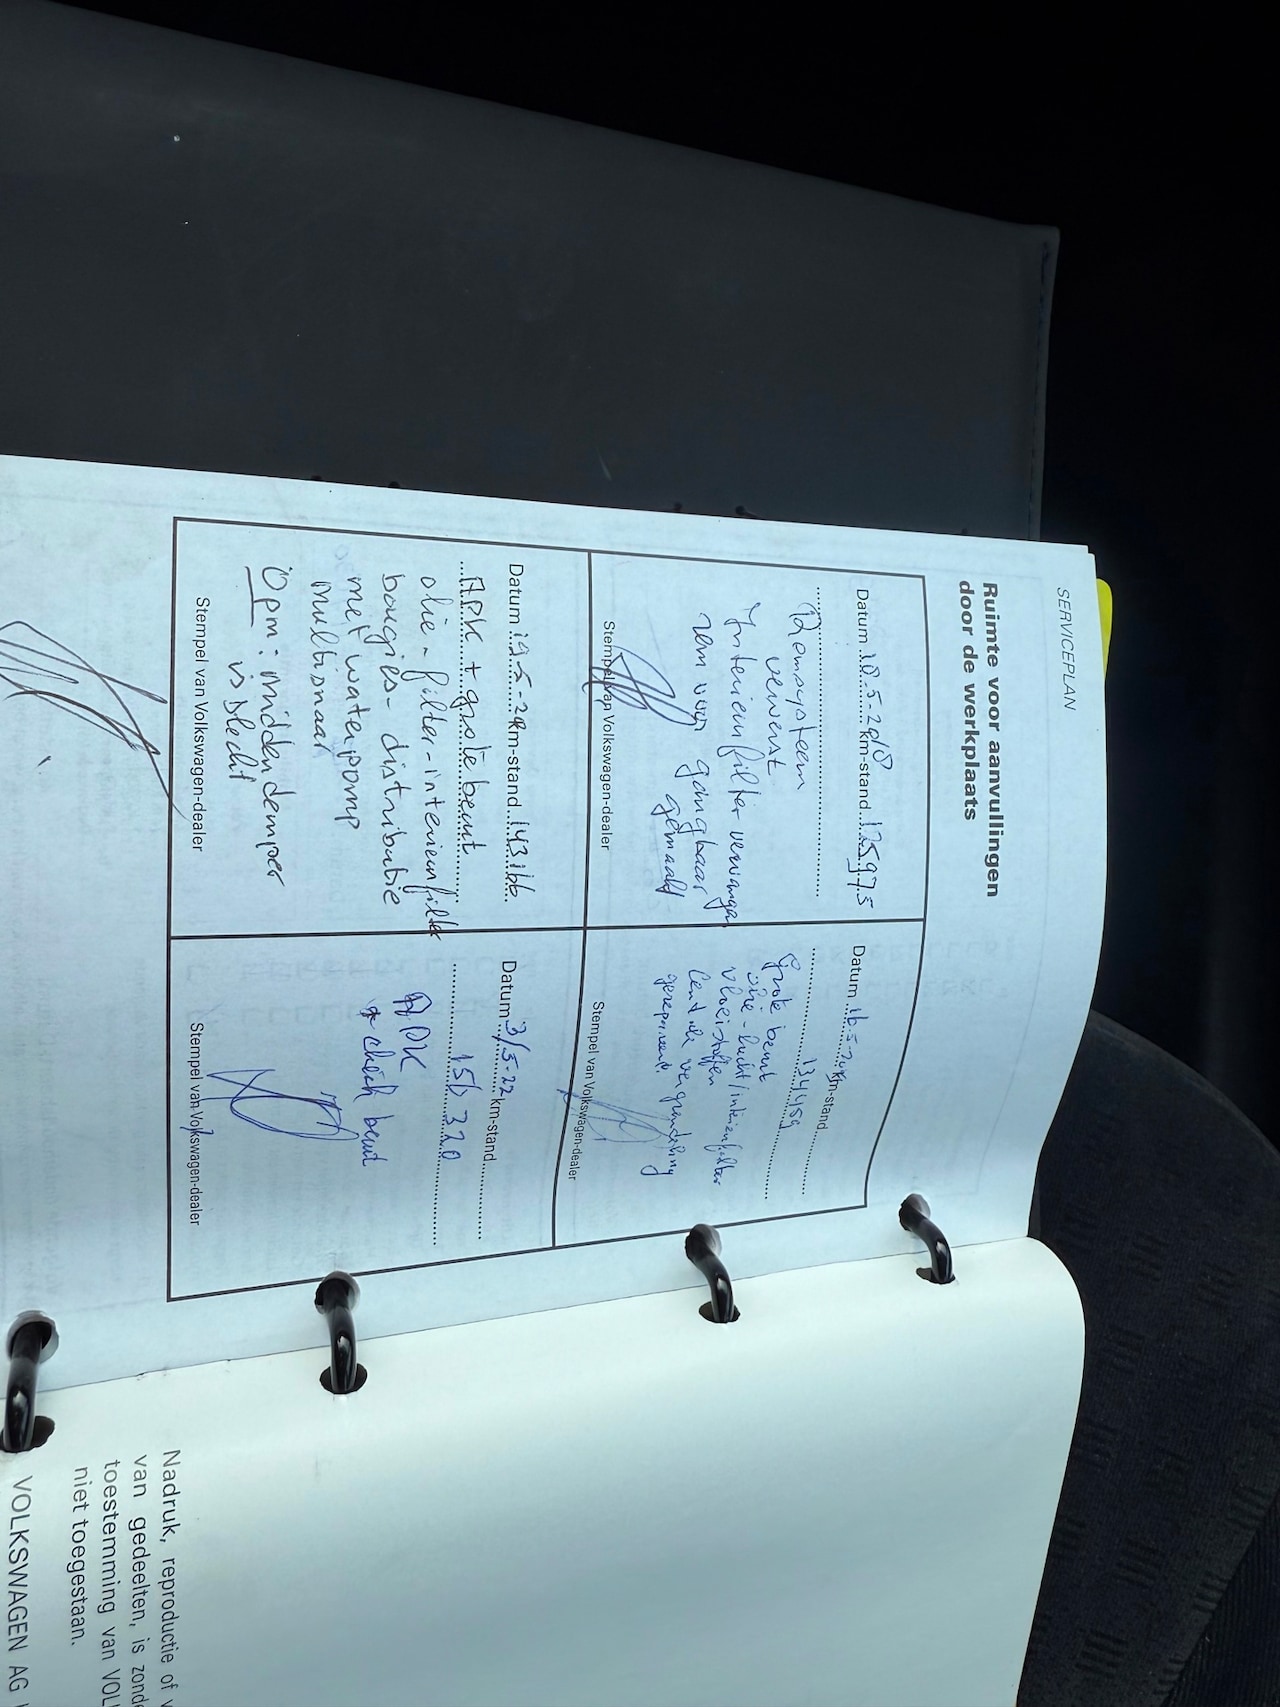 SERVICEPLAN
Ruimte voor aanvullingen
door de werkplaats
Datum 18.5-2018 km-stand 125975
Remsysteem
ververst
Interieurfilter vervangen
rem voor gangbaar
gemaakt
Stempel van Volkswagen-dealer
Datum 16-5-20 km-stand
134459
Grote beurt
olie-lucht/interieurfilter
vloeistoffen
Centrale vergrendeling
gerepareerd
Stempel van Volkswagen-dealer
Datum 19-5-2 km-stand 143166
APK + grote beurt
olie-filter-interieurfilter
bougies- distributie
met waterpomp
multisnaar
Opm: middendemper
is slecht
Stempel van Volkswagen-dealer
Datum 3/5-22 km-stand
150320
APK
+ check beurt
Stempel van Volkswagen-dealer
Nadruk, reproductie of
van gedeelten, is
toestemming van
niet toegestaan.
VOLKSWAGEN AG